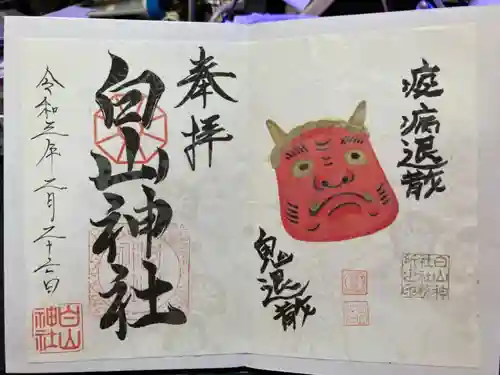 疫病退散
鬼退散
奉拝
白山神社
令和三年二月二十六日
白山
神社